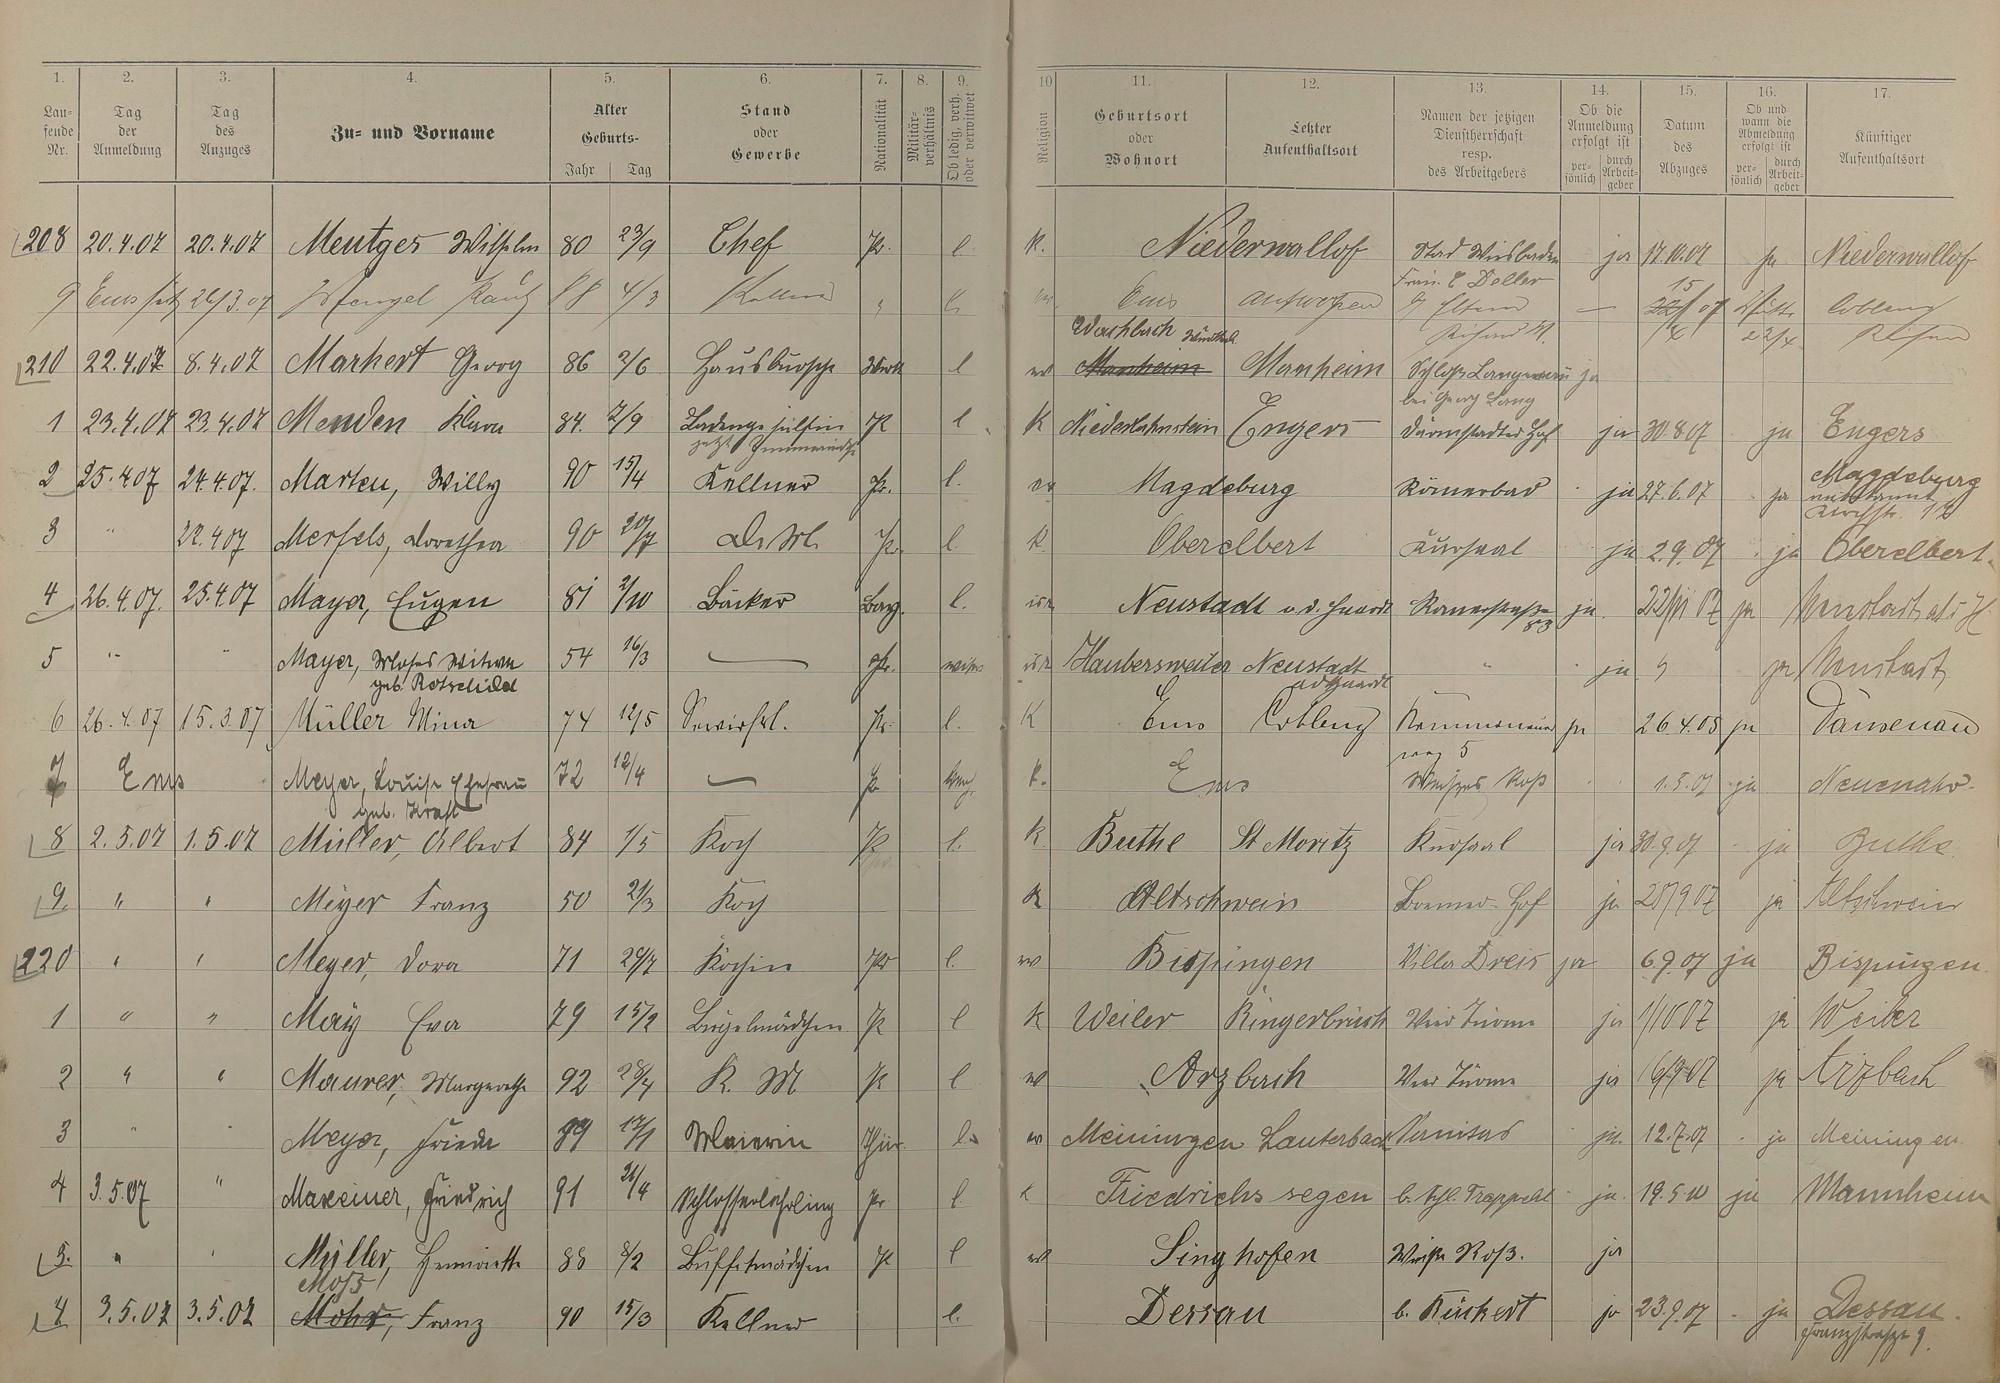 1. 2. 3. 4. 5. 6. 7. 8. 9. 10 11. 12. 13. 14. 15. 16. 17.
Laufende Nr. Tag der Anmeldung Tag des Anzuges Zu- und Vorname Alter Geburts- Jahr Tag Stand oder Gewerbe Nationalität Militärverhältnis Ob ledig, verh. oder verwitwet Religion Geburtsort oder Wohnort Letzter Aufenthaltsort Namen der jetzigen Dienstherrschaft resp. des Arbeitgebers Ob die Anmeldung erfolgt ist persönlich durch Arbeitgeber Datum des Abzuges Ob und wann die Abmeldung erfolgt ist persönlich durch Arbeitgeber Künftiger Aufenthaltsort
208 20.4.07 20.4.07 Mentges Wilhelm 80 23/9 Chef Pr. l. K. Niederwallof Stad Wiesbaden ja 17.10.07 ja Niederwallof
9 Ems 88 4/3 Ems Antwerpen 15 Coblenz
Wachbach
210 22.4.07 8.4.07 Markert Georg 86 2/6 Hausbursche l ev Manheim Manheim Schloß Langenau ja
bei Georg Lang
1 23.4.07 23.4.07 Menden Klara 84. 7/9 Ladengehülfin Pr l K Niederlahnstein Engers Darmstadter Hof ja 30 8 07 ja Engers
2 25.4.07 24.4.07. Marten, Willy 90 15/4 Kellner Pr. l. ev Magdeburg Römerbad ja 27.6.07 ja Magdeburg
3 " 22.4.07 Merfels, Dorothea 90 20/7 Pr. l. K. Oberelbert Kursaal ja 2.9.07 ja Oberelbert.
4 26.4.07. 25.4.07 Mayer, Eugen 81 2/10 Bäcker Bay. l. isr. Neustadt a.d. Haardt Römerstraße 83 ja. 22/VI 07 ja
5 " " Mayer, Moses Witwe 54 16/3 — Pr. isr. Haubersweiler Neustadt " ja " ja Neustadt
geb. Rotschild a d Haardt
6 26.4.07 15.3.07 Müller Mina 74 12/5 Pr. l. K Ems Coblenz ja 26.4.05 ja Dausenau
7 Ems Meyer, Louise Ehefrau 72 12/4 — Pr K. Ems Weißes Roß 1.5.07 ja Neuenahr
geb. Kraft
8 2.5.07 1.5.07 Müller, Albert 84 1/5 Koch Pr l. K. Buthe St Moritz Kursaal ja 30.9.07 ja
9. " " Meyer Franz 50 21/3 Koch K Altschwein Bremer-Hof ja ja Altschwein
220 " " Meyer, Dora 71 29/7 Köchin Pr l. ev Bispingen Villa Dreis ja 6.9.07 ja Bispingen
1 " " May Eva 79 15/2 Bügelmädchen Pr l K Weiler Bingerbrück Vier Türme ja 1/10 07 ja Weiler
2 " " Maurer, Margarethe 92 28/4 K. M Pr l ev Arzbach Vier Türme ja 16/9 07 ja Arzbach
3 " " Meyer, Frieda 89 17/1 Thür. l. ev Meiningen Lauterbach ja. 12.7.07 ja Meiningen
4 3.5.07 " Maxeiner, Friedrich 91 21/4 Schlosserlehrling Pr l. K Friedrichssegen b. Schl. ja. 19.5.10 ja Mannheim
5. " " Müller, Henriette 88 8/2 Buffetmädchen Pr l ev Singhofen Weiße Roß. ja
Moß
4 3.5.07 3.5.07 Mohr, Franz 90 15/3 Kellner l. Dessau b. Rückert ja 23.9.07 ja Dessau.
Franzstraße 9.